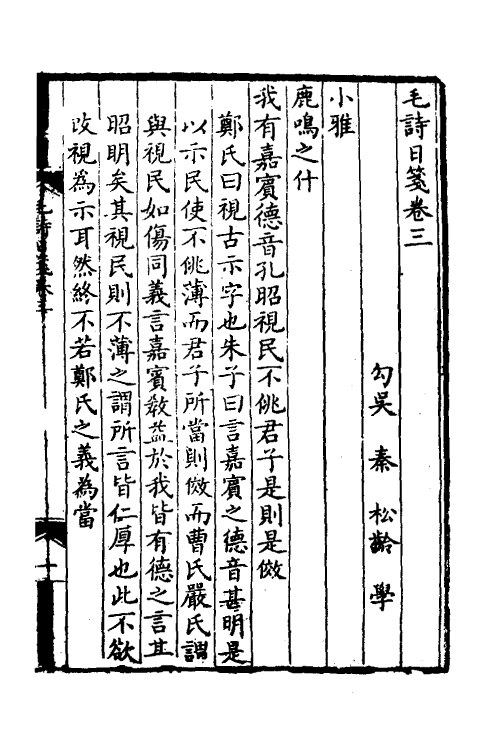 毛詩日箋卷三
勾吳 秦 松齡 學
小雅
鹿鳴之什
我有嘉賓德音孔昭視民不佻君子是則是傚
鄭氏曰視古示字也朱子曰言嘉賓之德音甚明是
以示民使不佻薄而君子所當則傚而曹氏嚴氏謂
與視民如傷同義言嘉賓敎益於我皆有德之言甚
昭明矣其視民則不薄之謂所言皆仁厚也此不欲
改視為示耳然終不若鄭氏之義為當
毛詩日箋卷三
一